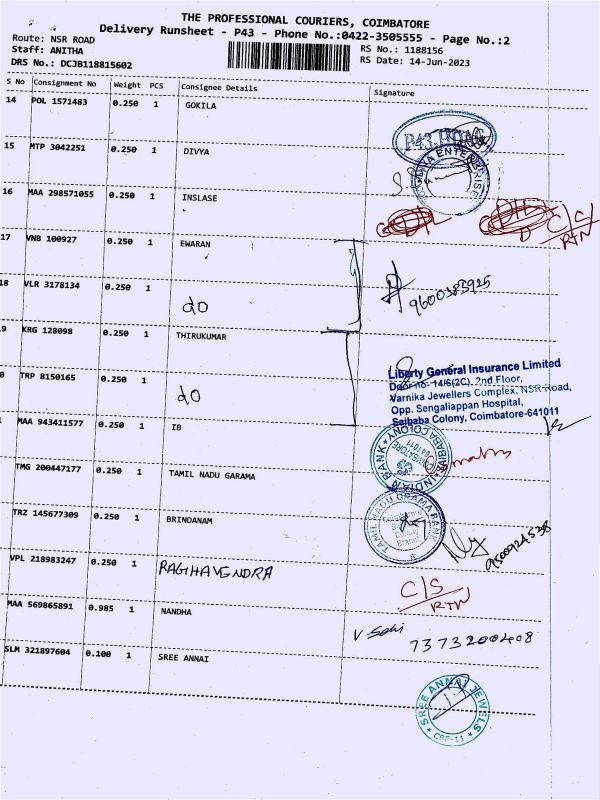 THE PROFESSIONAL COURIERS, COIMBATORE
Delivery Runsheet - P43 - Phone No.:0422-3505555 - Page No.:2
Route: NSR ROAD
Staff: ANITHA
RS No.: 1188156
DRS No.: DCJB118815602
RS Date: 14-Jun-2023
S No Consignment No Weight PCS Consignee Details Signature
14 POL 1571483 0.250 1 GOKILA
15 MTP 3042251 0.250 1 DIVYA
16 MAA 298571055 0.250 1 INSLASE
C/S
RTN
17 VNB 100927 0.250 1 EWARAN
18 VLR 3178134 0.250 1 do
9600383925
9 KRG 128098 0.250 1 THIRUKUMAR
Liberty General Insurance Limited
Door no- 14/6(2C), 2nd Floor,
Varnika Jewellers Complex, NSR-Road,
Opp. Sengaliappan Hospital,
Saibaba Colony, Coimbatore-641011
0 TRP 8150165 0.250 1 do
MAA 943411577 0.250 1 IB
INDIAN BANK
SAIBABA COLONY
COIMBATORE
641011
TMG 200447177 0.250 1 TAMIL NADU GARAMA
TAMIL NADU GRAMA BANK
TRZ 145677309 0.250 1 BRINDANAM
9500924538
VPL 218983247 0.250 1 RAGHAVENDRA
C/S
RTN
MAA 569865891 0.985 1 NANDHA
7373200408
SLM 321897604 0.100 1 SREE ANNAI
SREE ANNAI JEWELS
CBE-11